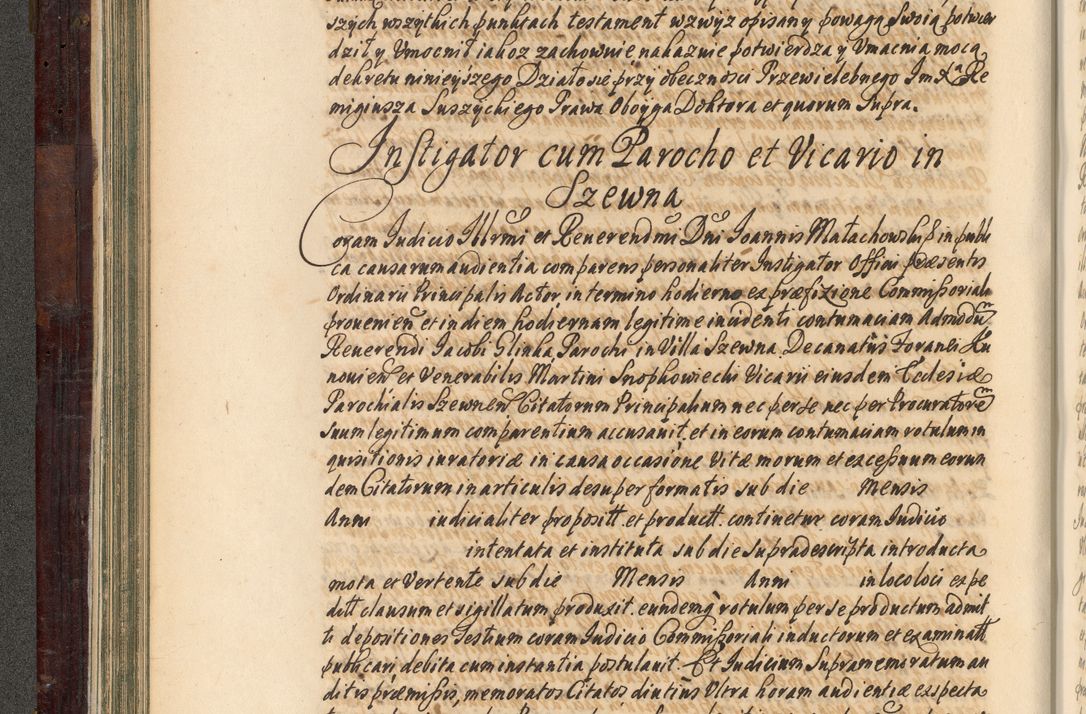 szych wszytkich punktach testament wzwyż opisany powagą Swoią potwier
dził y Umocnił iakoz zachowuie nakazuie potwierdza y Umacnia mocą
dekretu ninieyszego Działosie przy obecznosci Przewielebnego Im Xa Re
migiusza Suszyckiego Prawa Oboyga Doktora et quorum Supra.
Instigator cum Parocho et Vicario in
Szewna
Coram Iudicio Illrmi et Reuerendmi Dni Ioannis Małachowski in publi
ca causarum audientia comparens personaliter Instigator Officii præsentis
Ordinarii Principalis Actor, in termino hodierno ex præfixione Commissoriali
prouenien et in diem hodiernam legitime incidenti contumaciam Admodum
Reuerendi Iacobi Glinka Parochi in Villa Szewna Decanatus Foranei Ku
nouien et Venerabilis Martini Snopkowiecki Vicarii eiusdem Ecclesiæ
Parochialis Szewnen Citatorum Principalium nec per se nec per Procuratorem
suum legitimum comparentium accusauit, et in eorum contumaciam rotulum in
quisitionis iuratoriæ in causa occasione Vitæ morum et excessuum eorun
dem Citatorum in articulis desuper formatis sub die Mensis
Anni iudicialiter propositt. et productt. continetur coram Iudicio
intentata et instituta sub die supradescripta introducta
mota et Vertente sub die Mensis Anni in loco loci expe
ditt clausum et sigillatum produxit. eundemq rotulum per se productum admit
ti depositiones Testium coram Iudicio Commissoriali inductorum et examinatt
publicari debita cum instantia postulauit. Et Iudicium Supramemoratum au
ditis præmissis, memoratos Citatos diutius Ultra horam audientiæ exspecta